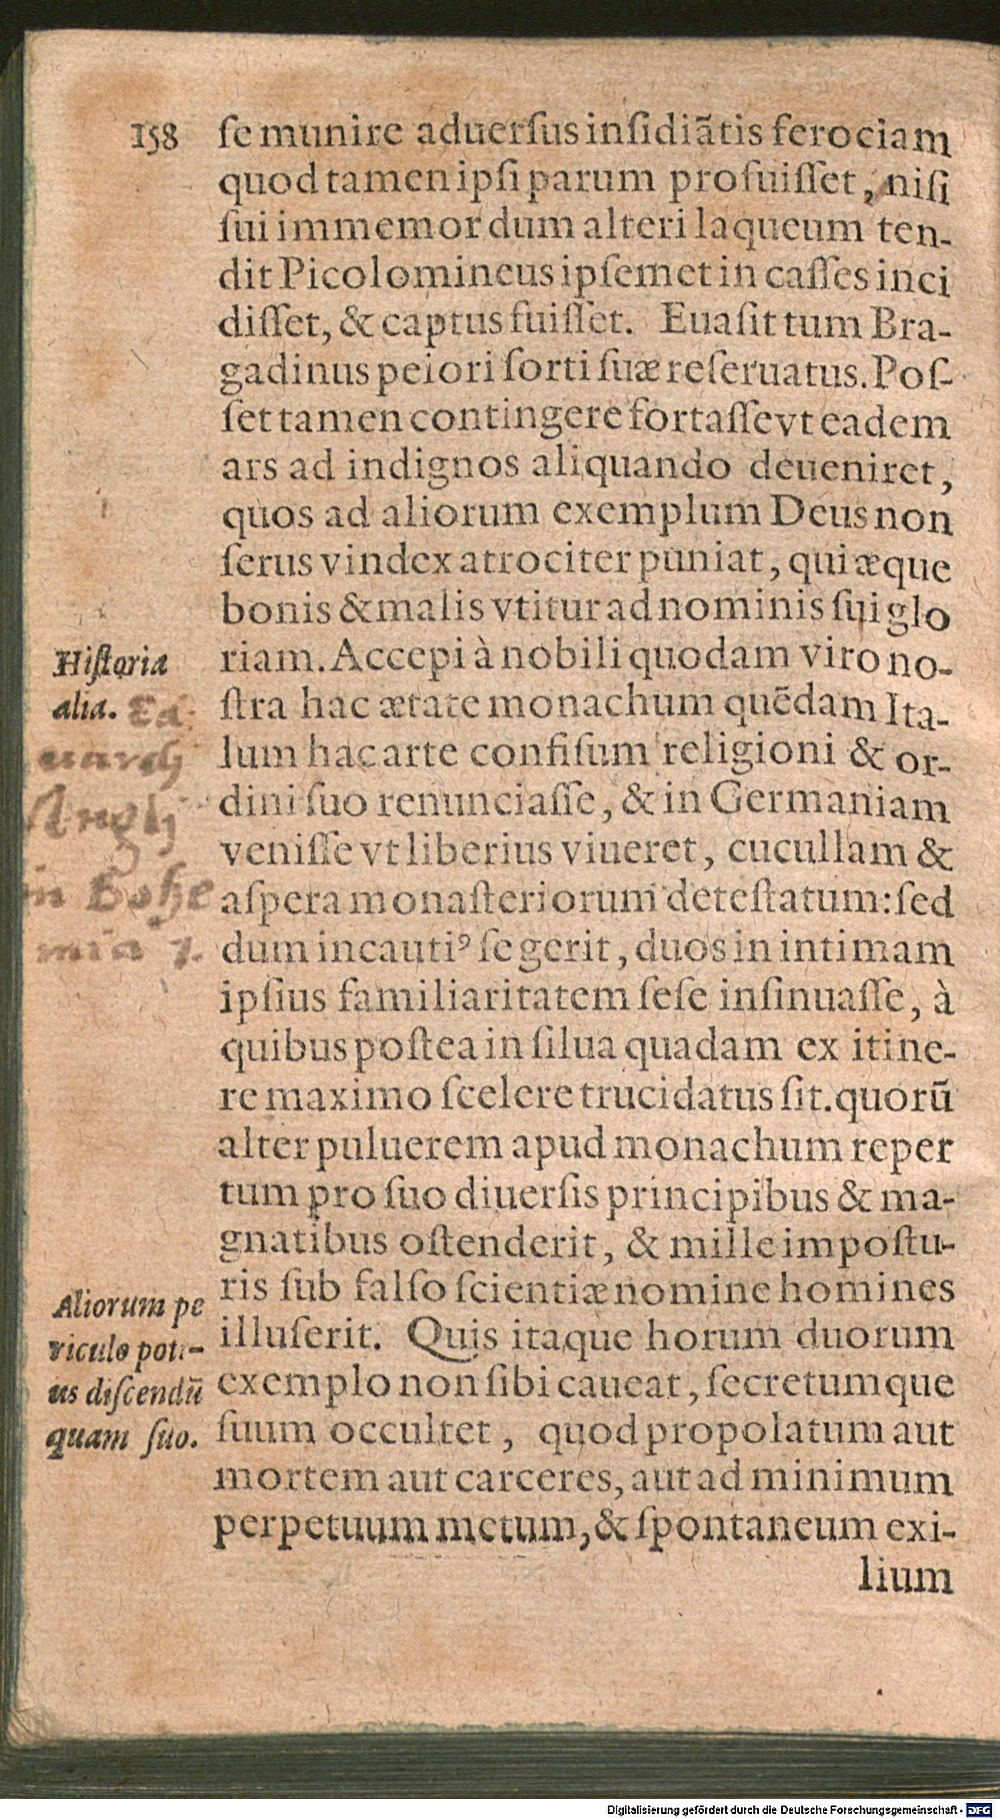 158 se munire aduersus insidiãtis ferociam
quod tamen ipsi parum profuisset, nisi
sui immemor dum alteri laqueum ten-
dit Picolomineus ipsemet in casses inci
disset, & captus fuisset. Euasit tum Bra-
gadinus peiori sorti suæ reseruatus. Pos-
set tamen contingere fortasse vt eadem
ars ad indignos aliquando deueniret,
quos ad aliorum exemplum Deus non
serus vindex atrociter puniat, qui æque
bonis & malis vtitur ad nominis sui glo
riam. Accepi à nobili quodam viro no-
stra hac ætate monachum quẽdam Ita-
lum hac arte confisum religioni & or-
dini suo renunciasse, & in Germaniam
venisse vt liberius viueret, cucullam &
aspera monasteriorum detestatum: sed
dum incautiꝰ se gerit, duos in intimam
ipsius familiaritatem sese insinuasse, à
quibus postea in silua quadam ex itine-
re maximo scelere trucidatus sit. quorũ
alter puluerem apud monachum reper
tum pro suo diuersis principibus & ma-
gnatibus ostenderit, & mille impostu-
ris sub falso scientiæ nomine homines
illuserit. Quis itaque horum duorum
exemplo non sibi caueat, secretumque
suum occultet, quod propolatum aut
mortem aut carceres, aut ad minimum
perpetuum metum, & spontaneum exi-
lium
Historia
alia. Ed
uardj
Anglj
in Bohe
mia
Aliorum pe
riculo poti-
us discendũ
quam suo.
Digitalisierung gefördert durch die Deutsche Forschungsgemeinschaft - DFG